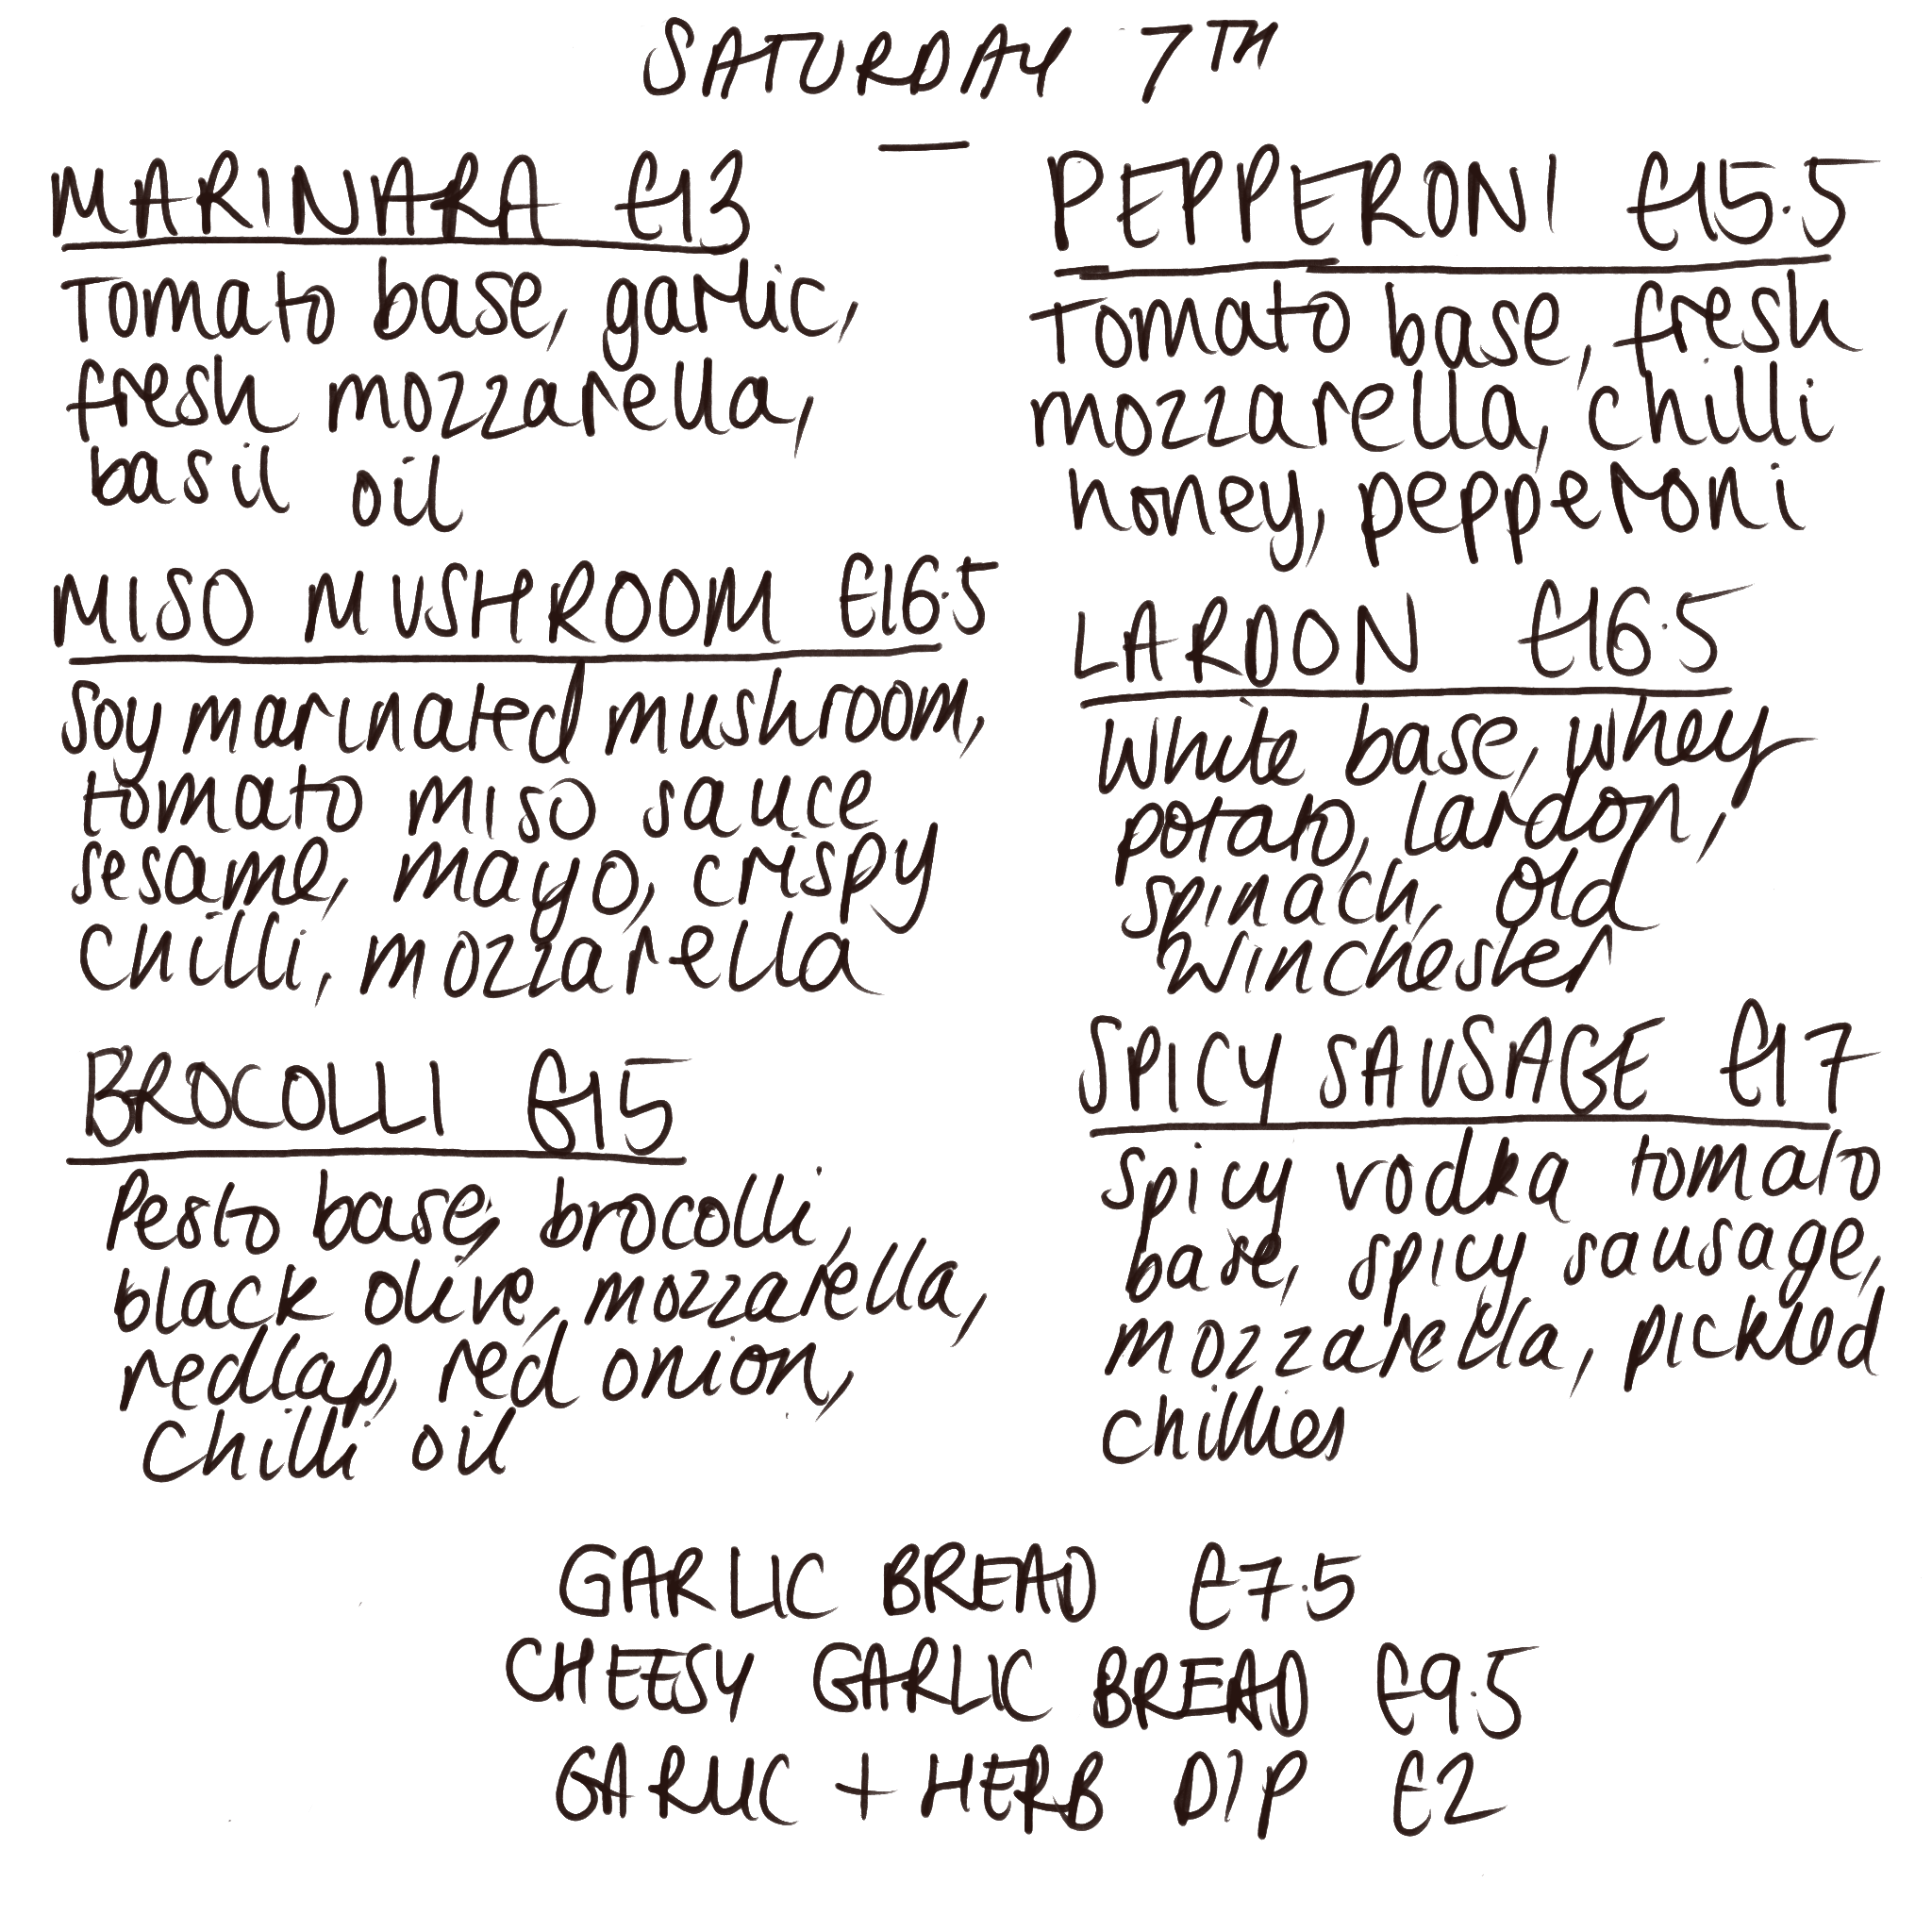 SATURDAY 7TH
MARINARA £13
Tomato base, garlic,
fresh mozzarella,
basil oil
MISO MUSHROOM £16.5
Soy marinated mushroom,
tomato miso sauce
sesame, mayo, crispy
chilli, mozzarella
BROCOLLI £15
Pesto base, brocolli,
black olive, mozzarella,
redlap, red onion,
Chilli oil
PEPPERONI £15.5
Tomato base, fresh
mozzarella, chilli
honey, pepperoni
LARDON £16.5
White base, whey
potato, lardon,
spinach, old
winchester
SPICY SAUSAGE £17
Spicy vodka tomato
base, spicy sausage,
mozzarella, pickled
chillies
GARLIC BREAD £7.5
CHEESY GARLIC BREAD £9.5
GARLIC + HERB DIP £2